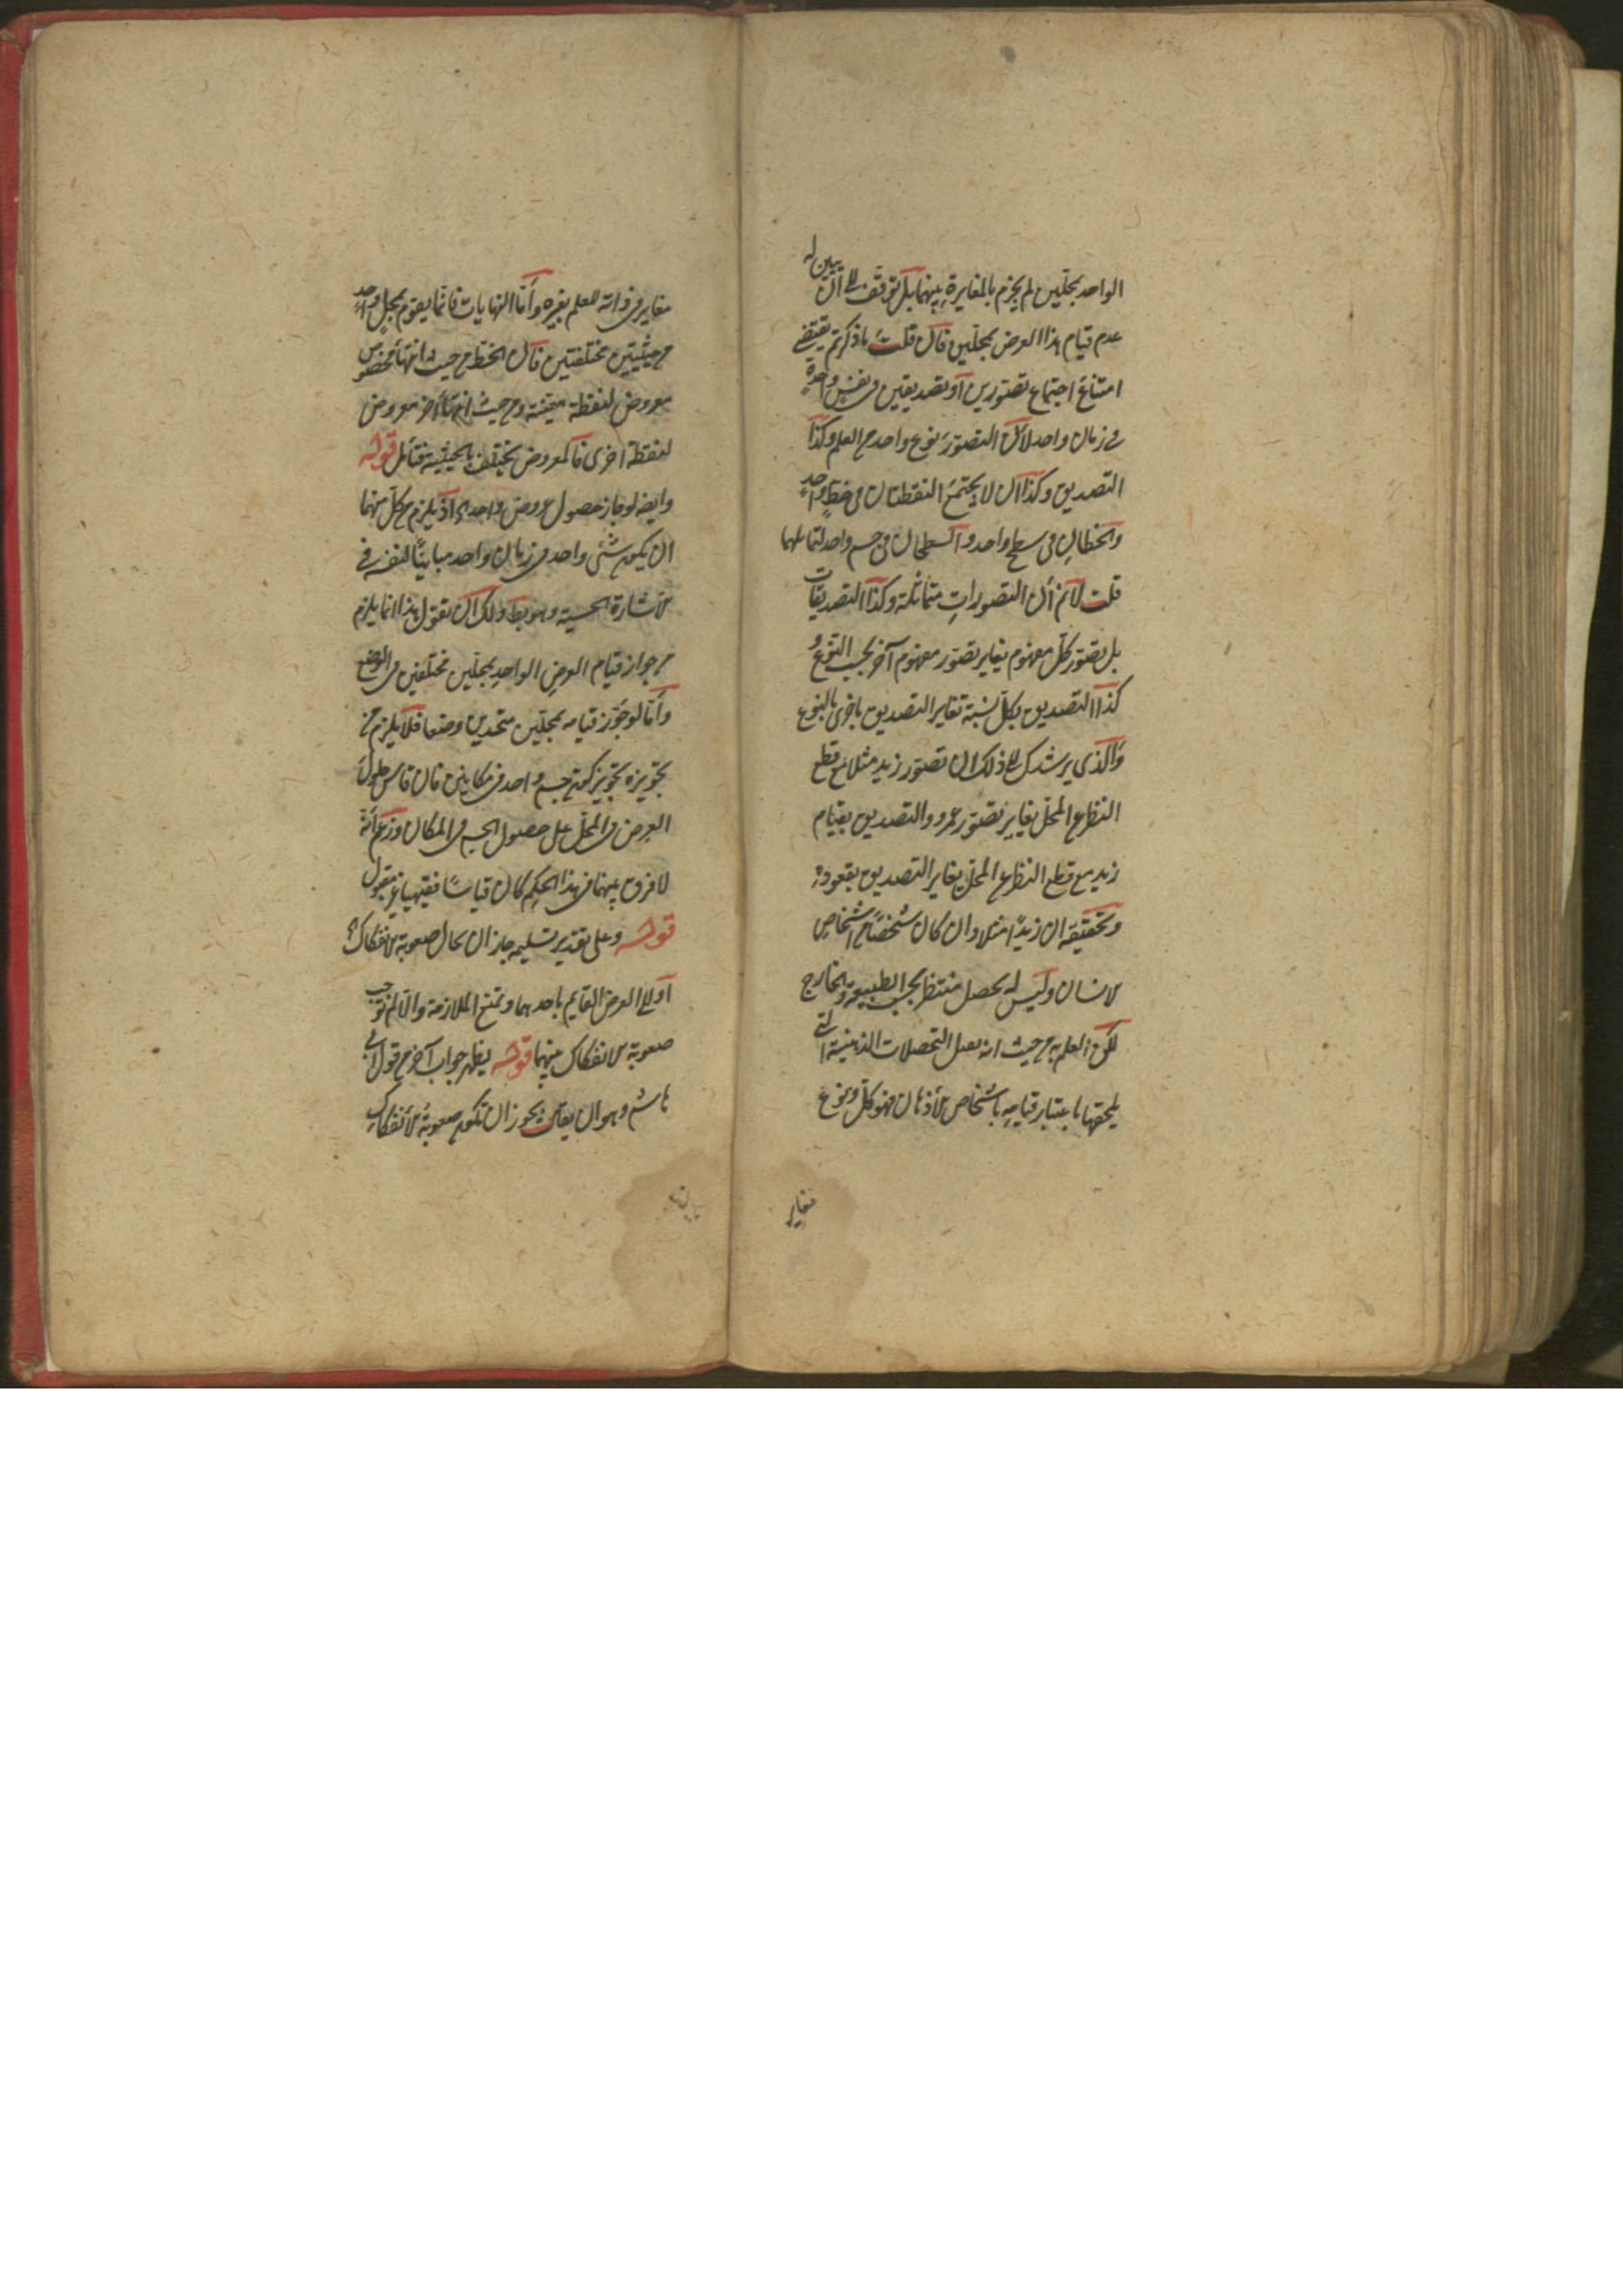 الواحد بمحلّين لم يجزم بالمغايرة بينهما بل توقف الى ان يبين له
عدم قيام هذا العرض بمحلّين فان قلت ما ذكرتم يقتضى
امتناع اجتماع تصوّرين او تصديقين فى نفس واحدة
فى زمان واحد لان التصوّر نوع واحد من العلم وكذا
التصديق وكذا ان لا يجتمع النقطتان فى خط واحد
والخطان فى سطح واحد والسطحان فى جسم واحد لتماثلهما
قلت لانم أن التصورات متماثلة وكذا التصديقات
بل تصوّر كل مفهوم يغاير تصوّر مفهوم آخر بحسب النوع و
كذا التصديق بكل نسبة تغاير التصديق باخرى بالنوع
والذى يرشدك الى ذلك ان تصوّر زيد مثلا مع قطع
النظر عن المحل يغاير تصوّر عمرو والتصديق بقيام
زيد مع قطع النظر عن المحل يغاير التصديق بقعوده
وتحقيقه ان زيدًا مثلا وان كان شخصًا من اشخاص
الانسان وليس له تحصل منتظر بحسب الطبيعة والخارج
لكن العلم به من حيث انه يقبل التحصلات الذهنية التى
يلحقها باعتبار قيامه باشخاص الأذهان فهو كلى ونوع
مغاير
مغاير فى ذاته للعلم بغيره وأمّا النهايات فانما يقوم بمحل واحد
من حيثيتين مختلفتين فان الخط من حيث انتهائه المخصوص
معروض لنقطة معينة ومن حيث انتهاء آخر معروض
لنقطة اخرى فالمعروض يختلف بالحيثية فتأمل قوله
وايضا لو جاز حصول عرض واحد اه اذ يلزم من كل منهما
ان يكون شئ واحد فى زمان واحد مباينًا لنفسه فى
الاشارة الحسية وهو بط ولك ان تقول هذا انما يلزم
من جواز قيام العرض الواحد بمحلّين مختلفين فى الوضع
وأمّا لو جوّز قيامه بمحلّين متحدين وضعا فلا يلزم من
تجويزه تجويز كون جسم واحد فى مكانين فان قاس حلول
العرض فى المحلّ على حصول الجسم فى المكان وزعم أنّه
لا فرق بينهما فى هذا الحكم كان قياسًا فقهيا غير مقبول
قوله وعلى تقدير تسليمه جاز ان يحال صعوبة الانفكاك اه
او الى العرض القايم باحدهما ونمنع الملازمة والا لم توجب
صعوبة الانفكاك بينهما قوله يظهر جواب آخر عن قول ابى
هاشم وهو ان يقال يجوز ان تكون صعوبة الأنفكاك